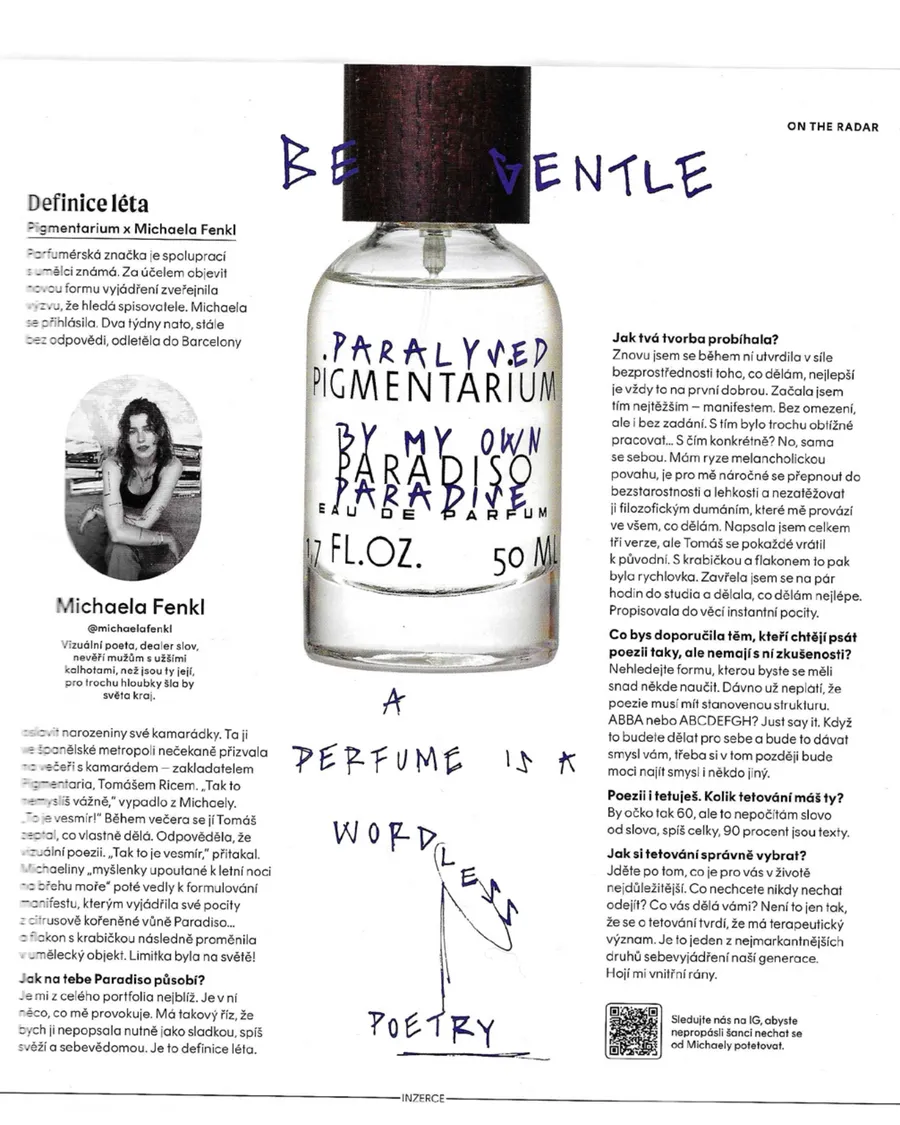 ON THE RADAR
BE GENTLE
Definice léta
Pigmentarium x Michaela Fenkl
Parfumérská značka je spoluprací
s umělci známá. Za účelem objevit
novou formu vyjádření zveřejnila
výzvu, že hledá spisovatele. Michaela
se přihlásila. Dva týdny nato, stále
bez odpovědi, odletěla do Barcelony
Michaela Fenkl
@michaelafenkl
Vizuální poeta, dealer slov,
nevěří mužům s užšími
kalhotami, než jsou ty její,
pro trochu hloubky šla by
světa kraj.
oslavit narozeniny své kamarádky. Ta ji
ve španělské metropoli nečekaně přizvala
na večeři s kamarádem – zakladatelem
Pigmentaria, Tomášem Ricem. „Tak to
nemyslíš vážně,“ vypadlo z Michaely.
„To je vesmír!“ Během večera se jí Tomáš
zeptal, co vlastně dělá. Odpověděla, že
vizuální poezii. „Tak to je vesmír,“ přitakal.
Michaeliny „myšlenky upoutané k letní noci
na břehu moře“ poté vedly k formulování
manifestu, kterým vyjádřila své pocity
z citrusově kořeněné vůně Paradiso...
a flakon s krabičkou následně proměnila
v umělecký objekt. Limitka byla na světě!
Jak na tebe Paradiso působí?
Je mi z celého portfolia nejblíž. Je v ní
něco, co mě provokuje. Má takový říz, že
bych ji nepopsala nutně jako sladkou, spíš
svěží a sebevědomou. Je to definice léta.
PARALYSED
PIGMENTARIUM
BY MY OWN
PARADISO
PARADISE
EAU DE PARFUM
1.7 FL.OZ. 50 ML
A
PERFUME IS A
WORDLESS
POETRY
Jak tvá tvorba probíhala?
Znovu jsem se během ní utvrdila v síle
bezprostřednosti toho, co dělám, nejlepší
je vždy to na první dobrou. Začala jsem
tím nejtěžším – manifestem. Bez omezení,
ale i bez zadání. S tím bylo trochu obtížné
pracovat... S čím konkrétně? No, sama
se sebou. Mám ryze melancholickou
povahu, je pro mě náročné se přepnout do
bezstarostnosti a lehkosti a nezatěžovat
ji filozofickým dumáním, které mě provází
ve všem, co dělám. Napsala jsem celkem
tři verze, ale Tomáš se pokaždé vrátil
k původní. S krabičkou a flakonem to pak
byla rychlovka. Zavřela jsem se na pár
hodin do studia a dělala, co dělám nejlépe.
Propisovala do věcí instantní pocity.
Co bys doporučila těm, kteří chtějí psát
poezii taky, ale nemají s ní zkušenosti?
Nehledejte formu, kterou byste se měli
snad někde naučit. Dávno už neplatí, že
poezie musí mít stanovenou strukturu.
ABBA nebo ABCDEFGH? Just say it. Když
to budete dělat pro sebe a bude to dávat
smysl vám, třeba si v tom později bude
moci najít smysl i někdo jiný.
Poezii i tetuješ. Kolik tetování máš ty?
By očko tak 60, ale to nepočítám slovo
od slova, spíš celky, 90 procent jsou texty.
Jak si tetování správně vybrat?
Jděte po tom, co je pro vás v životě
nejdůležitější. Co nechcete nikdy nechat
odejít? Co vás dělá vámi? Není to jen tak,
že se o tetování tvrdí, že má terapeutický
význam. Je to jeden z nejmarkantnějších
druhů sebevyjádření naší generace.
Hojí mi vnitřní rány.
Sledujte nás na IG, abyste
nepropásli šanci nechat se
od Michaely potetovat.
INZERCE